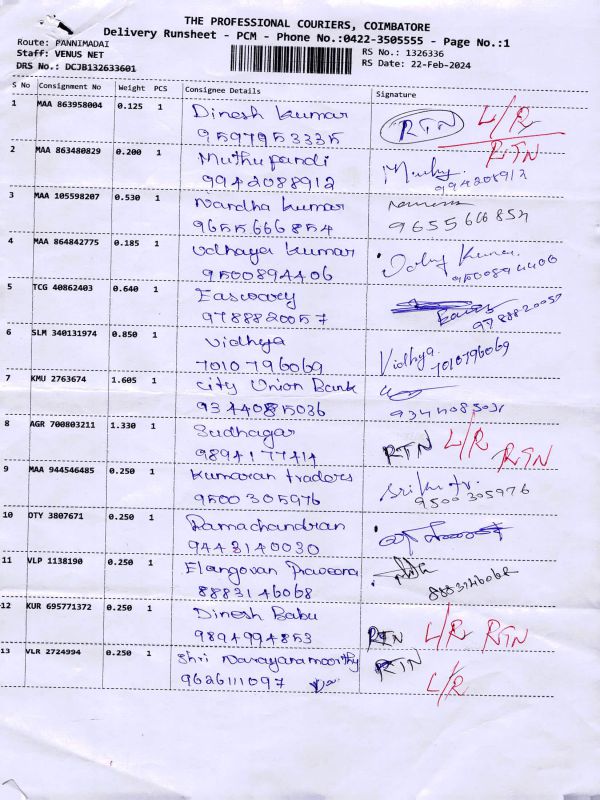 THE PROFESSIONAL COURIERS, COIMBATORE
Delivery Runsheet - PCM - Phone No.:0422-3505555 - Page No.:1
Route: PANNIMADAI
RS No.: 1326336
Staff: VENUS NET
RS Date: 22-Feb-2024
DRS No.: DCJB132633601
S No Consignment No Weight PCS Consignee Details Signature
1 MAA 863958004 0.125 1 Dinesh Kumar RTN L/R
9597953335
RTN
2 MAA 863480829 0.200 1 Muthupandi
9942088912
3 MAA 105598207 0.530 1 Nandha Kumar
9655666854 9655666854
4 MAA 864842775 0.185 1 Udhaya Kumar
9500894406 9500894406
5 TCG 40862403 0.640 1 Easwary
9788820057 9788820057
6 SLM 340131974 0.850 1 Vidhya Vidhya
7010796069 7010796069
7 KMU 2763674 1.605 1 City Union Bank
9344085036
8 AGR 700803211 1.330 1 Sudhagar RTN L/R RTN
9894177414
9 MAA 944546485 0.250 1 Kumaran traders
9500305976 9500305976
10 OTY 3807671 0.250 1 Ramachandran
9443140030
11 VLP 1138190 0.250 1 Elangovan
8883146068
12 KUR 695771372 0.250 1 Dinesh Babu
9894994853 RTN L/R RTN
13 VLR 2724994 0.250 1 Shri Narayanamoorthy RTN
9626111097 L/R